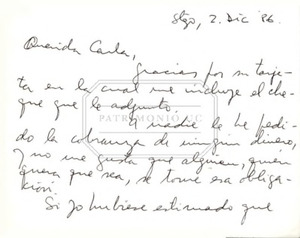 Stgo, 2. Dic 86.
Querida Carla,
gracias por su tarje-
ta en la cual me incluye el che-
que que le adjunto.
A nadie le he pedi-
do la cobranza de ningún dinero,
y no me gusta que alguien, quien
quiera que sea, se tome esa obliga-
ción.
Si yo hubiese estimado que
PATRIMONIO CC